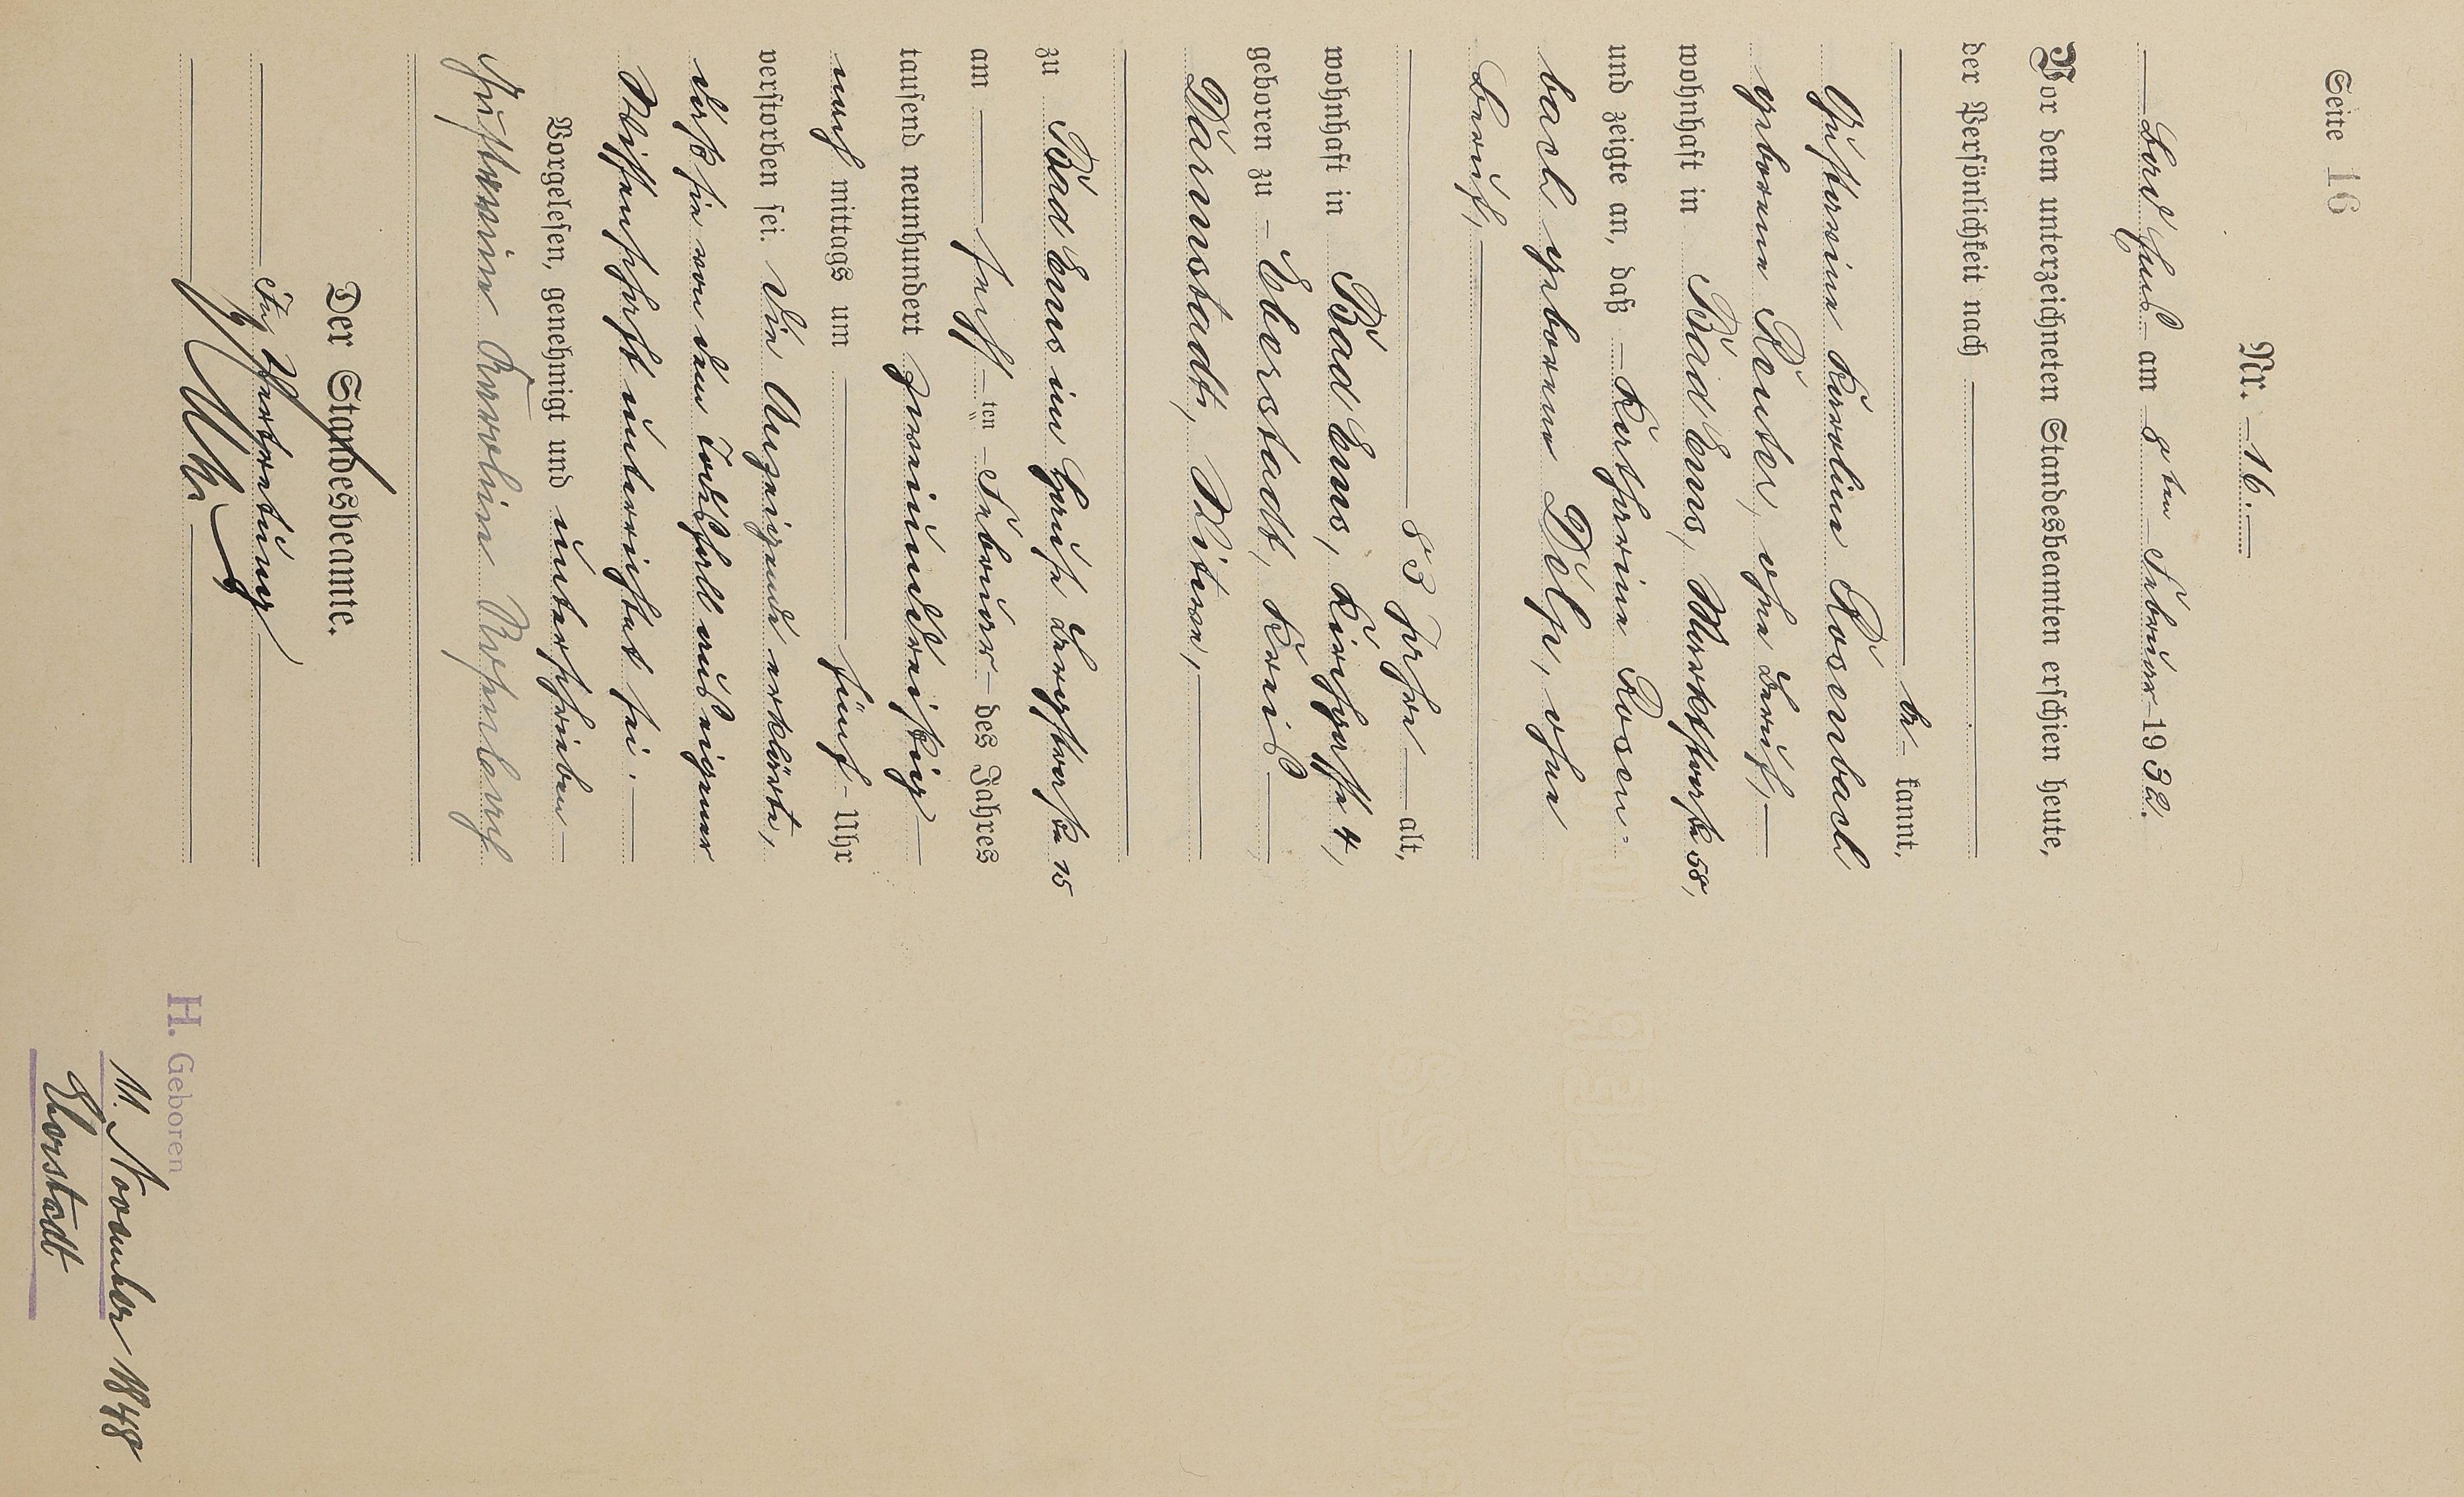 Seite 16
Nr. 16.
Bad Ems am 8ten Februar 1932.
Vor dem unterzeichneten Standesbeamten erschien heute,
der Persönlichkeit nach
be kannt,
Karoline Rosenbach
geborene Reuter, ohne Beruf,
wohnhaft in Bad Ems, Marktstraße 58,
und zeigte an, daß Katharina Rosen=
bach geborene Dölp, ohne
Beruf,
83 Jahre alt,
wohnhaft in Bad Ems, Kirchgasse 4,
geboren zu Eberstadt, Kreis
Darmstadt, Witwe,
zu Bad Ems im Hause Bergstraße 15
am sechsten Februar des Jahres
tausend neunhundert zweiunddreißig
nach mittags um fünf Uhr
verstorben sei. Die Anzeigende erklärte,
daß sie von dem Todesfall aus eigener
Wissenschaft unterrichtet sei.
Vorgelesen, genehmigt und unterschrieben
Karoline Rosenbach
Der Standesbeamte.
In Vertretung
H. Geboren
11. November 1848
Eberstadt